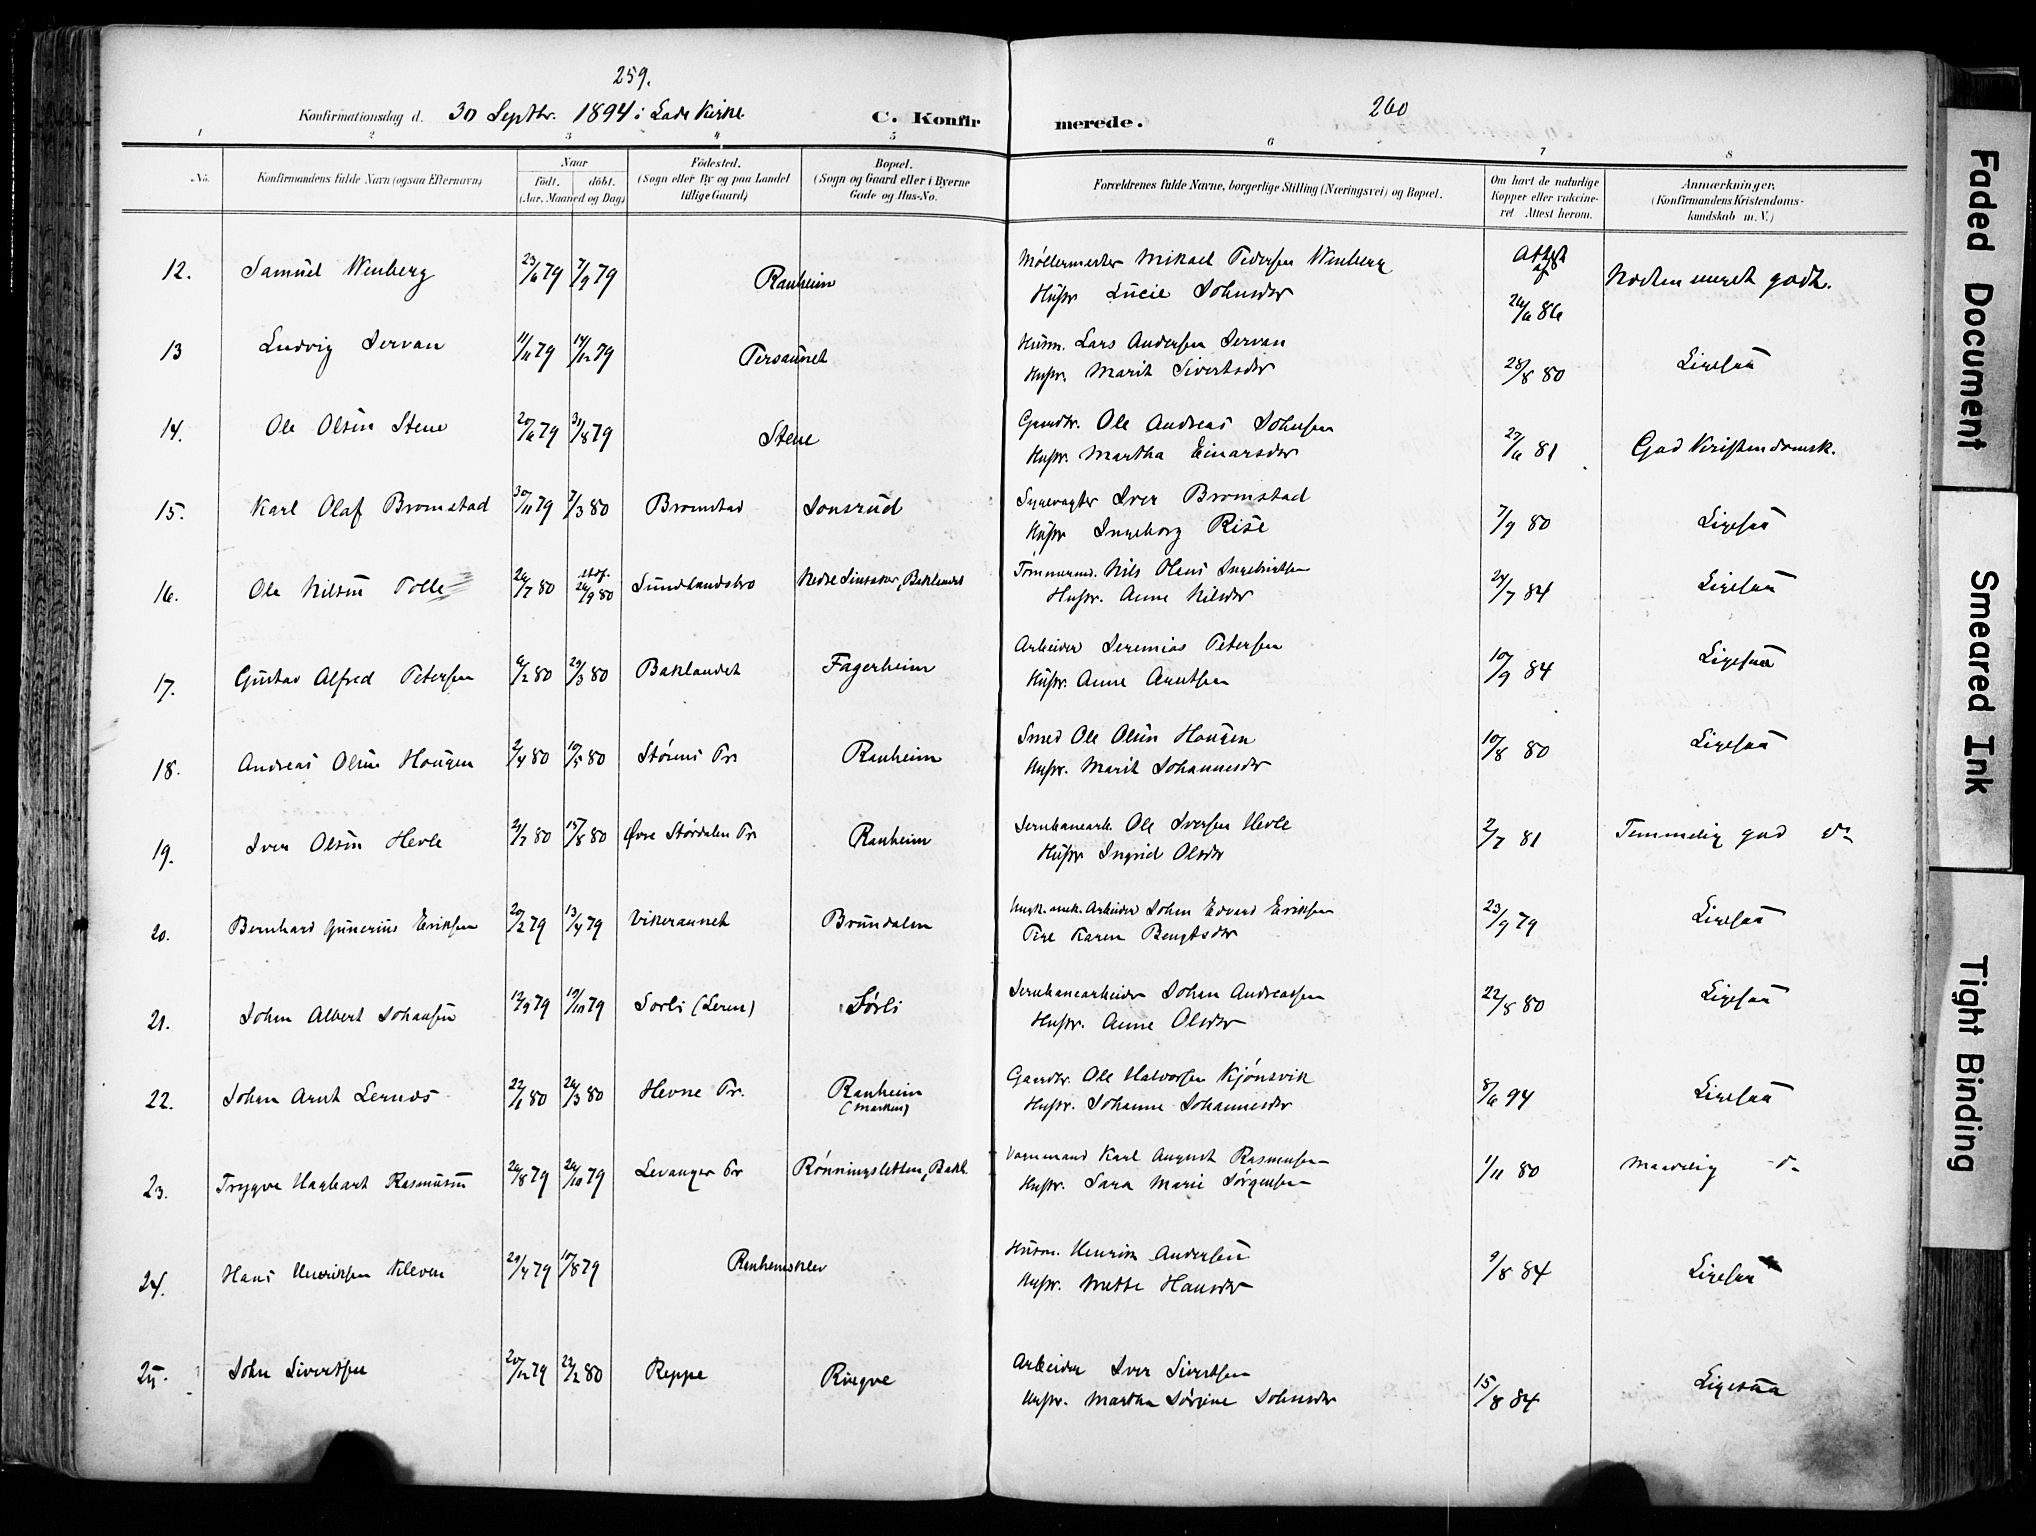 259.
260
Konfirmationsdag d. 30 Septbr. 1894 i Lade Kirke
C. Konfirmerede.
1 2 3 4 5 6 7 8
No.
Konfirmandens fulde Navn (ogsaa Efternavn)
Naar
Födt. döbt.
(Aar, Maaned og Dag)
Födested.
(Sogn eller By og paa Landet
tillige Gaard)
Bopæl.
(Sogn og Gaard eller i Byerne
Gade og Hus-No.
Forældrenes fulde Navne, borgerlige Stilling (Næringsvei) og Bopæl.
Om havt de naturlige
Kopper eller vakcine-
ret Attest herom.
Anmærkninger.
(Konfirmandens Kristendoms-
kundskab m. V.)
12. Samuel Wenberg 23/6 79 7/9 79 Ranheim
Møllermester Mikael Pedersen Wenberg
Hustr. Lucie Johnsdr
Attest
af
26/6 86
Næsten meget godt.
13 Ludvig Jervan 11/11 79 14/12 79 Persaunet
Husm. Lars Andersen Jervan
Hustr. Marit Sivertsdr
28/8 80 Ligesaa
14. Ole Olsen Stene 20/6 79 31/8 79 Stene
Gaardbr. Ole Andreas Johnsen
Hustr. Martha Einarsdr
27/6 81 God Kristendomsk.
15. Karl Olaf Bromstad 30/11 79 7/3 80 Bromstad Jonsrud
Iver Bromstad
Hustr Ingeborg Rise
7/9 80 Ligesaa
16. Ole Nilsen Tolle 26/7 80 26/9 80 Sundlandsbro Nedre Singsaker, Baklandet
Tømmermd. Nils Olaus Ingebrigtsen
Hustr. Anne Nilsdr
24/7 84 Ligesaa
17. Gustav Alfred Petersen 6/2 80 29/3 80 Baklandet Fagerheim
Arbeider Jeremias Petersen
Hustr. Anne Arntsen
10/9 84 Ligesaa
18. Andreas Olsen Haugen 2/4 80 10/5 80 Størens Pr. Ranheim
Smed Ole Olsen Haugen
Hustr. Marit Johannesdr
10/8 80 Ligesaa
19. Iver Olsen Hevle 2/7 80 15/8 80 Øvre Størdalen Pr. Ranheim
Jernbanearb. Ole Iversen Hevle
Hustr Ingrid Olsdr
2/7 81 Temmelig god do
20. Bernhard Gunerius Eriksen 20/2 79 13/4 79 Vikeraunet Brundalen
Ungk. Arbeider Johan Edvard Eriksen
Pige Karen Bengtsdr
23/9 79 Ligesaa
21. Johan Albert Johansen 12/9 79 19/10 79 Sørli (Leren) Sørli
Jernbanearbeider Johan Andreassen
Hustr. Anne Olsdr
22/8 80 Ligesaa
22. Johan Arnt Lernæs 22/1 80 26/3 80 Hevne Pr. Ranheim
(Marken)
Gaardbr. Ole Halvorsen Kjønsvik
Hustr. Johanna Johannesdr
8/6 94 Ligesaa
23. Trygve Hagbart Rasmussen 26/8 79 26/10 79 Levanger Pr Rønningsletten, Bakl.
Vognmand Karl August Rasmussen
Hustr. Sara Marie Jørgensen
1/11 80 Maadelig do
24. Hans Henriksen Kleven 29/4 79 10/8 79 Ranheimsklev
Husm. Henrik Andersen
Hustr. Mette Hansdr
9/8 84 Ligesaa
25. John Sivertsen 20/12 79 22/2 80 Reppe Ringve
Arbeider Iver Sivertsen
Hustr. Martha Sørine Johnsdr
15/8 84 Ligesaa
Faded Document
Smeared Ink
Tight Binding